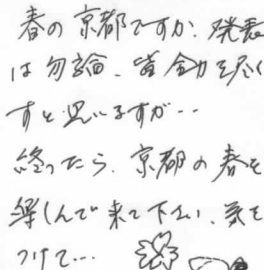 春の京都ですか、発表
は勿論、皆全力を尽く
すと思いますが‥
終ったら、京都の春を
楽しんで来て下さい、気を
つけて…